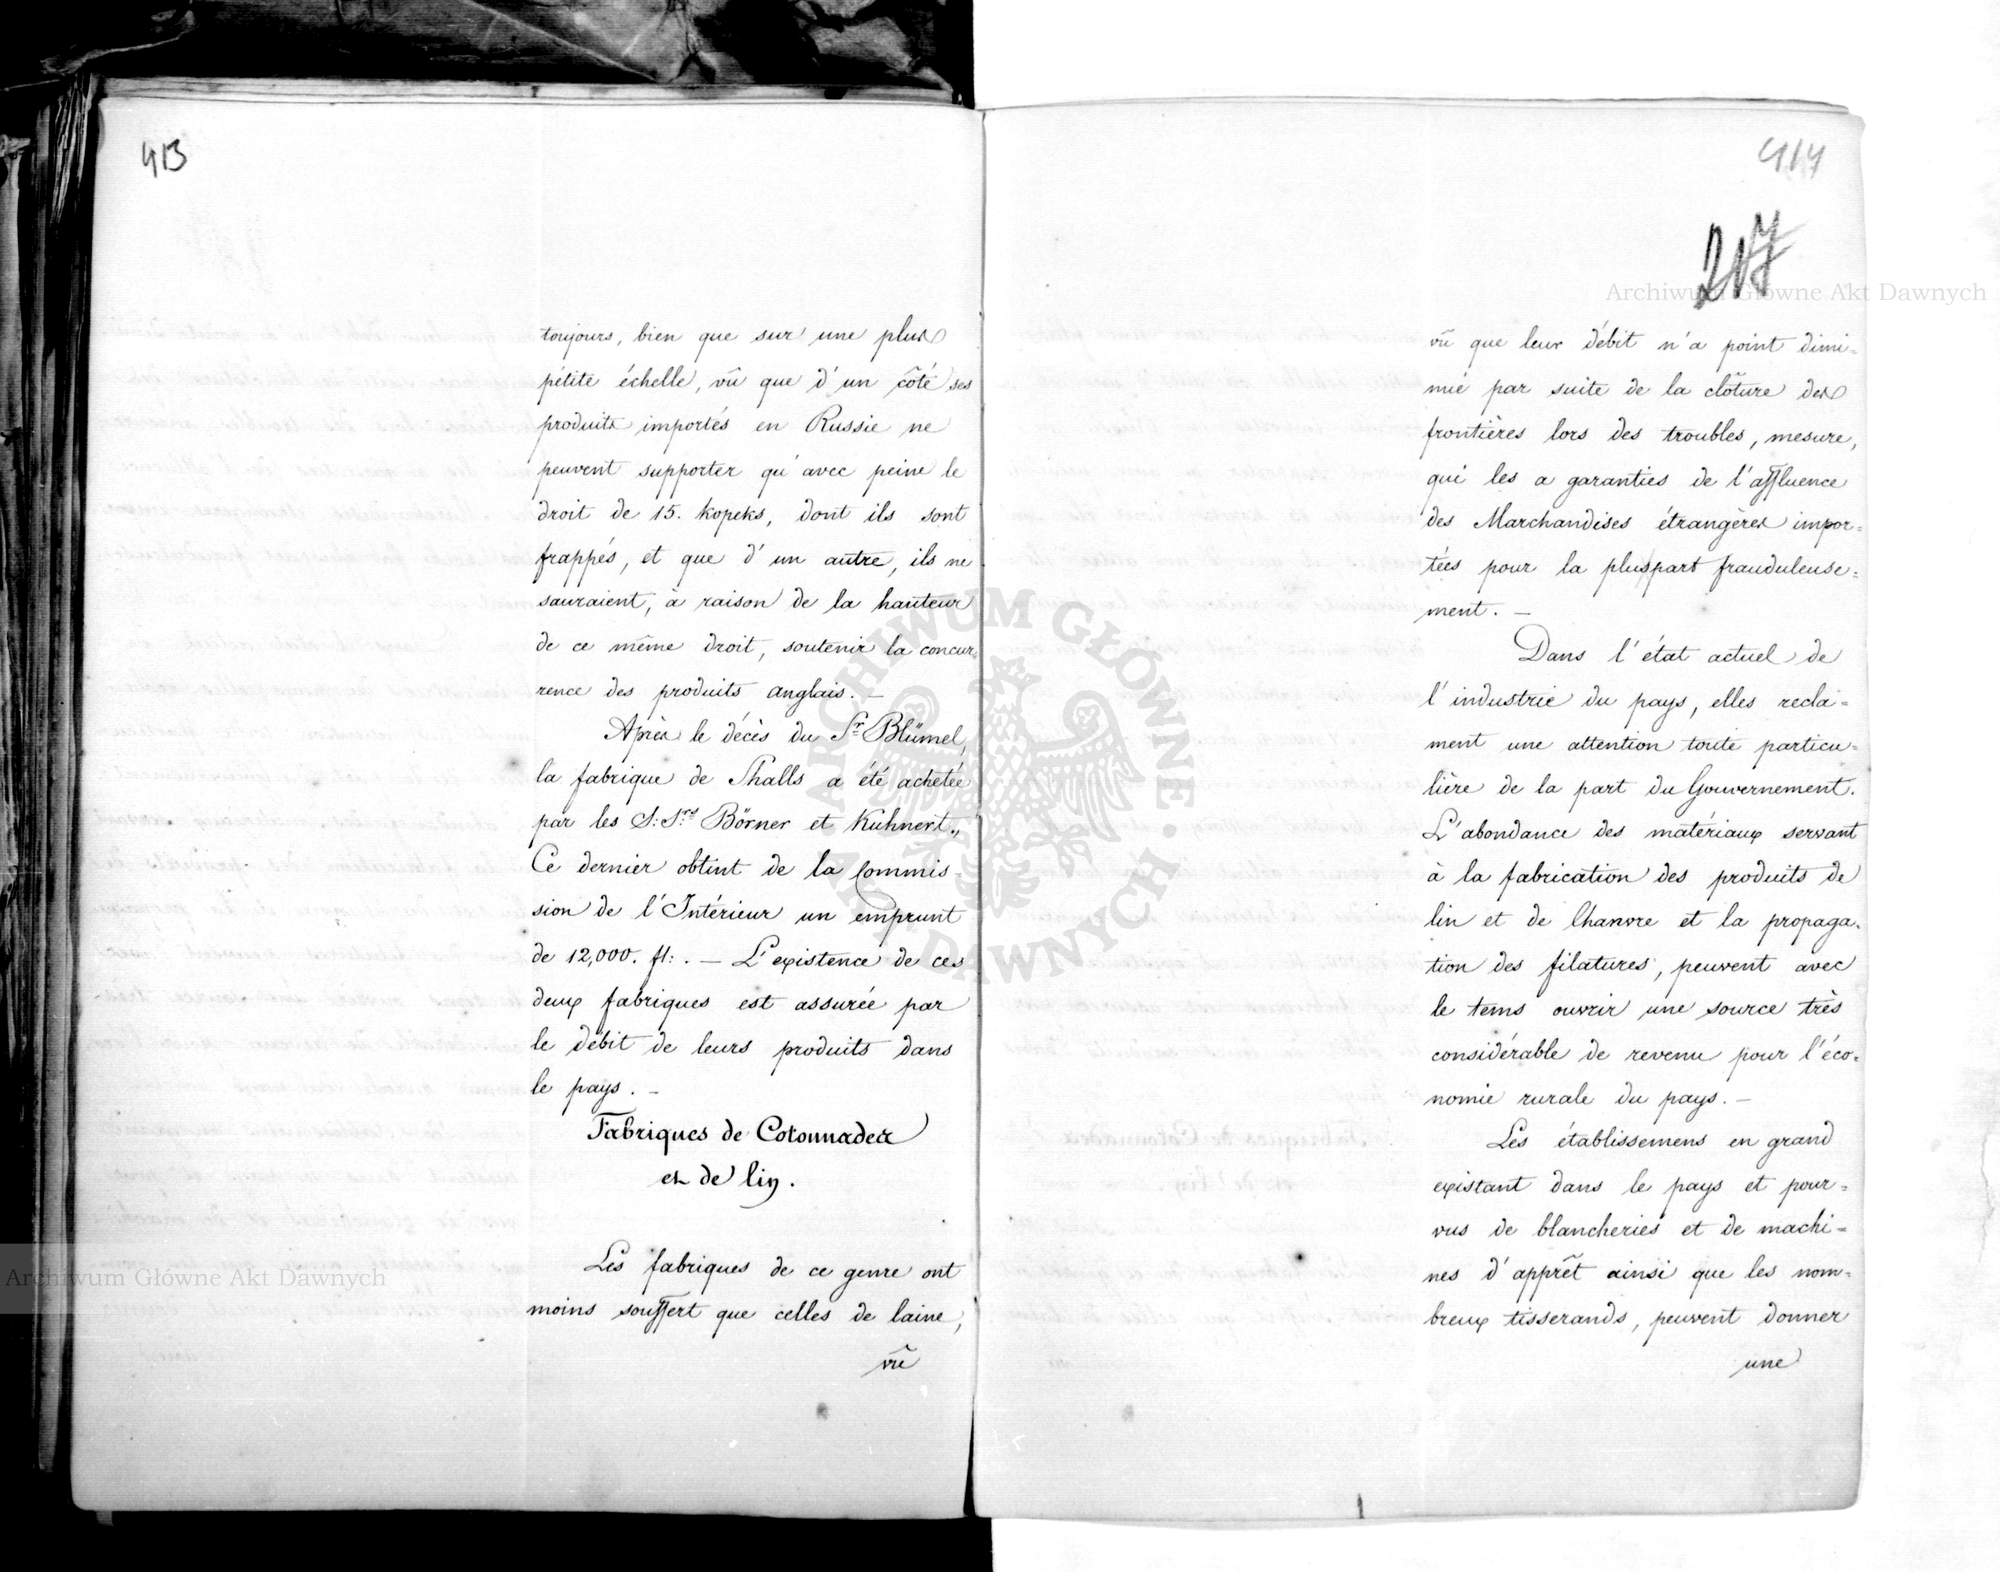 413
toujours, bien que sur une plus
pétite échelle, vû que d'un côté ses
produits importés en Russie ne
peuvent supporter qu'avec peine le
droit de 15. kopeks, dont ils sont
frappés, et que d'un autre, ils ne
sauraient, à raison de la hauteur
de ce même droit, soutenir la concur=
rence des produits anglais. —
Après le décès du Sr Blümel,
la fabrique de Shalls a été achetée
par les S: Srs Börner et Kuhnert.,
Ce dernier obtint de la Commis-
sion de l'Intérieur un emprunt
de 12,000. fl: . — L'existence de ces
deux fabriques est assurée par
le débit de leurs produits dans
le pays. —
Fabriques de Cotonnades
et de lin.
Les fabriques de ce genre ont
moins souffert que celles de laine,
vû
414
207
vû que leur débit n'a point dimi=
nué par suite de la clôture des
frontières lors des troubles, mesure,
qui les a garanties de l'affluence
des Marchandises étrangères impor=
tées pour la pluspart frauduleuse=
ment. —
Dans l'état actuel de
l'industrie du pays, elles recla=
ment une attention toute particu=
lière de la part du Gouvernement.
L'abondance des matériaux servant
à la fabrication des produits de
lin et de Chanvre et la propaga=
tion des filatures, peuvent avec
le tems ouvrir une source très
considérable de revenu pour l'éco=
nomie rurale du pays. —
Les établissemens en grand
existant dans le pays et pour=
vus de blancheries et de machi=
nes d'apprêt ainsi que les nom=
breux tisserands, peuvent donner
une
Archiwum Główne Akt Dawnych
Archiwum Główne Akt Dawnych
ARCHIWUM GŁÓWNE AKT DAWNYCH